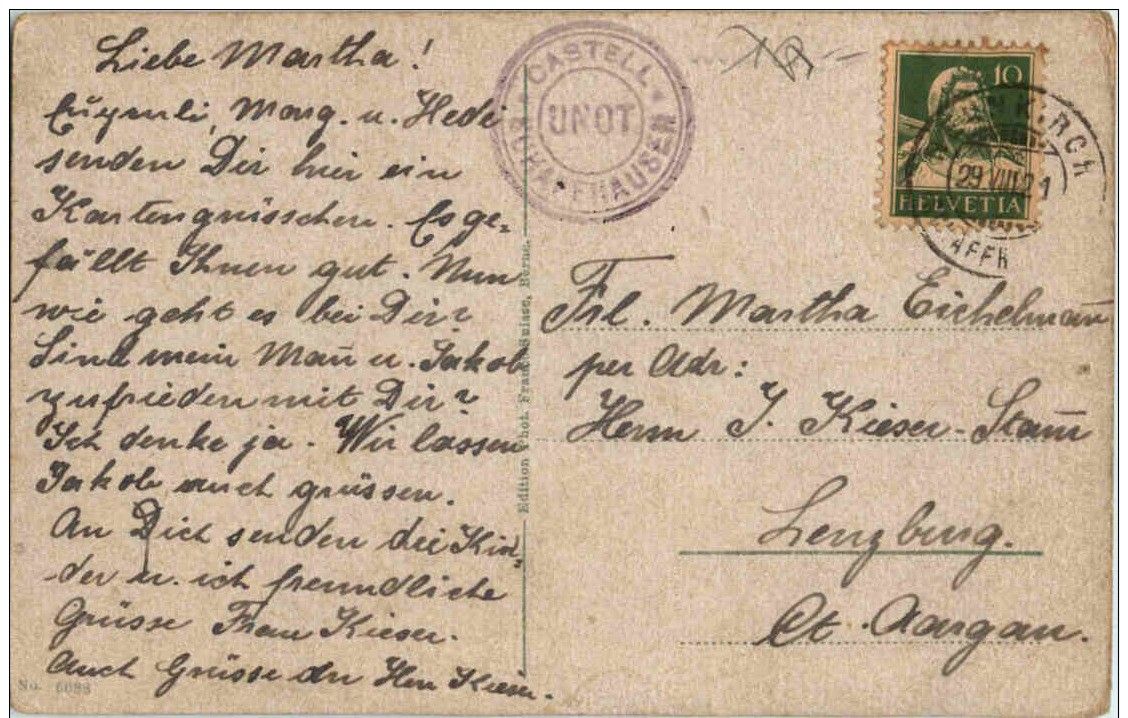 Liebe Martha!
Eugenli, Marg. u. Hedi
senden Dir hier ein
Kartengrüsschen. Es ge-
fällt Ihnen gut. Nun
wie geht es bei Dir?
Sind mein Mañ u. Jakob
zufrieden mit Dir?
Ich denke ja. Wir lassen
Jakob auch grüssen.
An Dich senden die Kin-
der u. ich freundliche
Grüsse Frau Kieser.
Auch Grüsse den Herr Kieser.
No. 6088
Edition Phot. Franco-Suisse, Berne.
CASTELL
UNOT
SCHAFFHAUSEN
10
HELVETIA
29.VIII.21
Frl. Martha Eichelmañ
per Adr:
Herrn J. Kieser-Stam̄
Lenzburg.
Ct. Aargau.